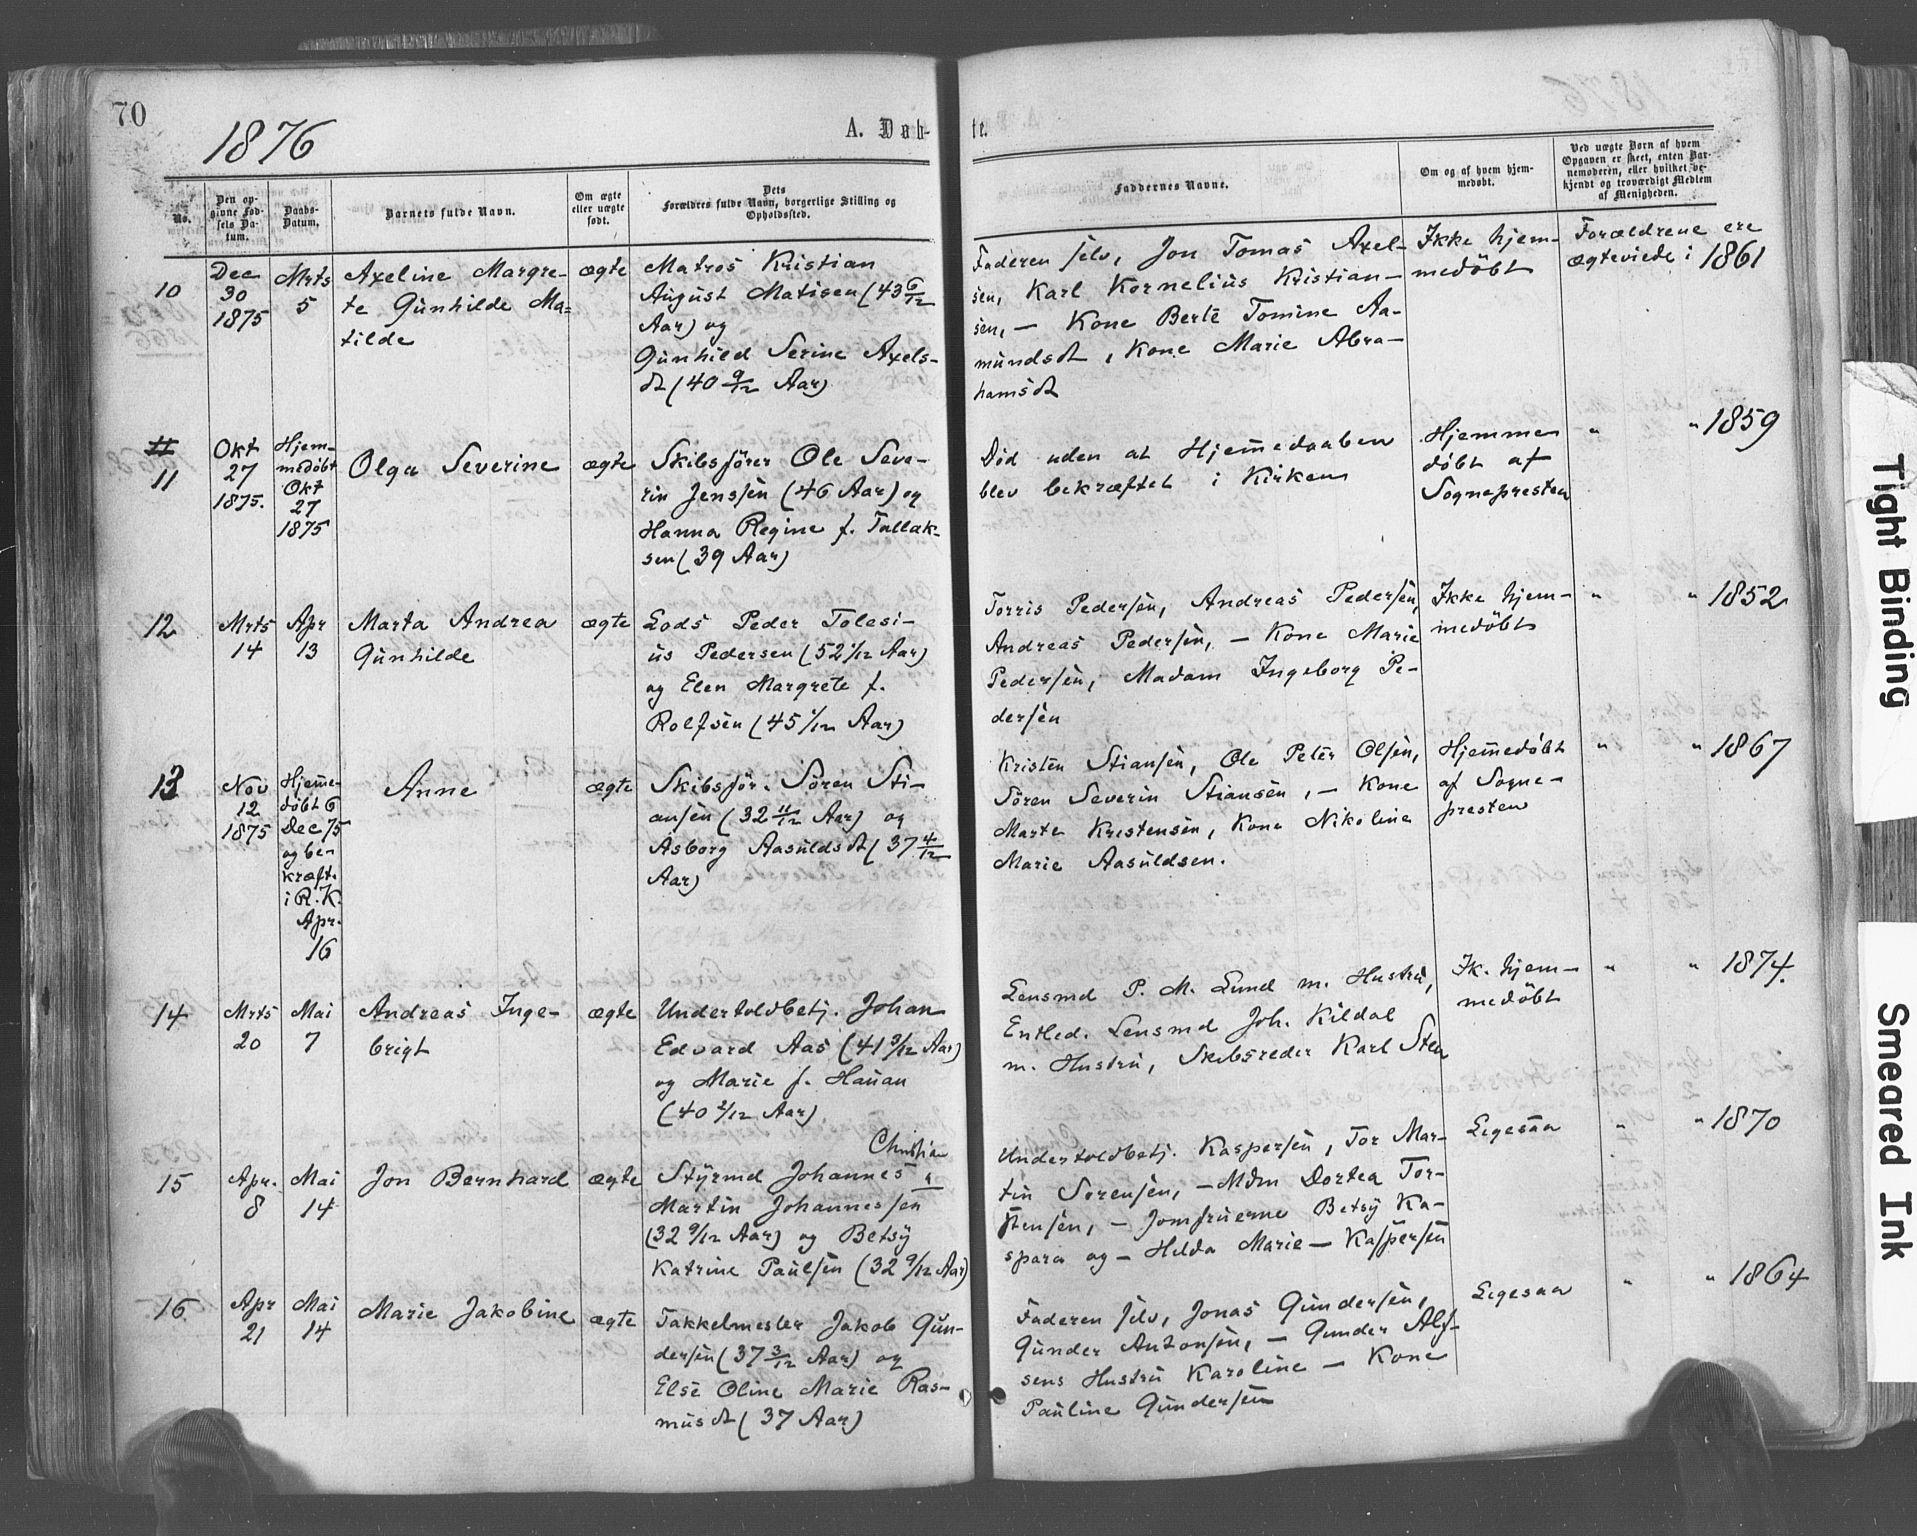 70
1876
A. Døb-
te.
No.
Den op-
givne Fød-
sels Da-
tum.
Daabs-
Datum.
Barnets fulde Navn.
Om ægte
eller uægte
født.
Dets
Forældres fulde Navn, borgerlige Stilling og
Opholdssted.
Faddernes Navne.
Om og af hvem hjem-
medøbt.
Ved uægte Børn af hvem
Opgaven er skeet, enten Bar-
nemoderen, eller hvilket be-
kjendt og troværdigt Medlem
af Menigheden.
10
Dec
30
1875
Mrts
5
Axeline Margre-
te Gunhilde Ma=
tilde
ægte
Matros Kristian
August Matisen (43 6/12
Aar) og
Gunhild Serine Axels-
dt (40 9/12 Aar)
Faderen selv, Jon Tomas Axel-
sen, Karl Kornelius Kristian-
sen, — Kone Berte Tomine Aa-
mundsdt, Kone Marie Abra-
hamsdt
Ikke hjem-
medøbt
Forældrene ere
ægteviede i 1861
11
11
Okt
27
1875.
Hjem-
medøbt
Okt
27
1875
Olga Severine
ægte
Skibsfører Ole Seve-
rin Jenssen (46 Aar) og
Hanna Regine f. Tallak-
sen (39 Aar)
Død uden at Hjemmedaaben
blev bekræftet i Kirken
Hjemme
døbt af
Sognepresten
" " 1859
12
Mrts
14
Apr
13
Marta Andrea
Gunhilde
ægte
Lods Peder Tolesi-
us Pedersen (52 1/12 Aar)
og Elen Margrete f.
Rolfsen (45 1/12 Aar)
Torris Pedersen, Andreas Pedersen,
Andreas Pedersen, — Kone Marie
Pedersen, Madam Ingeborg Pe-
dersen
Ikke hjem-
medøbt
" " 1852
13
Nov
12
1875
Hjemme-
døbt 6
Dec 75
og be-
kræft.
i R. K.
Apr.
16
Anne
ægte
Skibsfør. Søren Sti-
ansen (32 11/12 Aar) og
Asborg Aasuldsdt (37 4/12
Aar)
Kristen Stiansen, Ole Peter Olsen,
Søren Severin Stiansen, — Kone
Marte Kristensen, Kone Nikoline
Marie Aasuldsen.
Hjemmedøbt
af Sogne-
presten
" " 1867
14
Mrts
20
Mai
7
Andreas Inge-
brigt
ægte
Undertoldbetj. Johan
Edvard Aas (41 3/12 Aar)
og Marie f. Hauan
(40 2/12 Aar)
Lensmd P. M. Lund m. Hustru,
Entled. Lensmd Joh. Kildal
m. Hustru, Skibsreder Karl Steen
Ik. hjem-
medøbt
" " 1874.
15
Apr.
8
Mai
14
Jon Bernhard
ægte
Christian
Styrmd Johannes
Martin Johannessen
(32 9/12 Aar) og Betsy
Katrine Paulsen (32 9/12 Aar)
Undertoldbetj. Kaspersen, Tor Mar-
tin Sørensen, — Mdm Dortea Tor-
stensen, — Jomfruerne Betsy Ka-
spara og — Hilda Marie — Kaspersen
Ligesaa
" " 1870
16.
Apr
21
Mai
14
Marie Jakobine
ægte
Takkelmester Jakob Gun-
dersen (37 3/12 Aar) og
Else Oline Marie Ras-
musdt (37 Aar)
Faderen selv, Jonas Gundersen,
Gunder Antonsen, — Gunder Alf-
sens Hustru Karoline — Kone
Pauline Gundersen
Ligesaa
" " 1864
Tight Binding
Smeared Ink